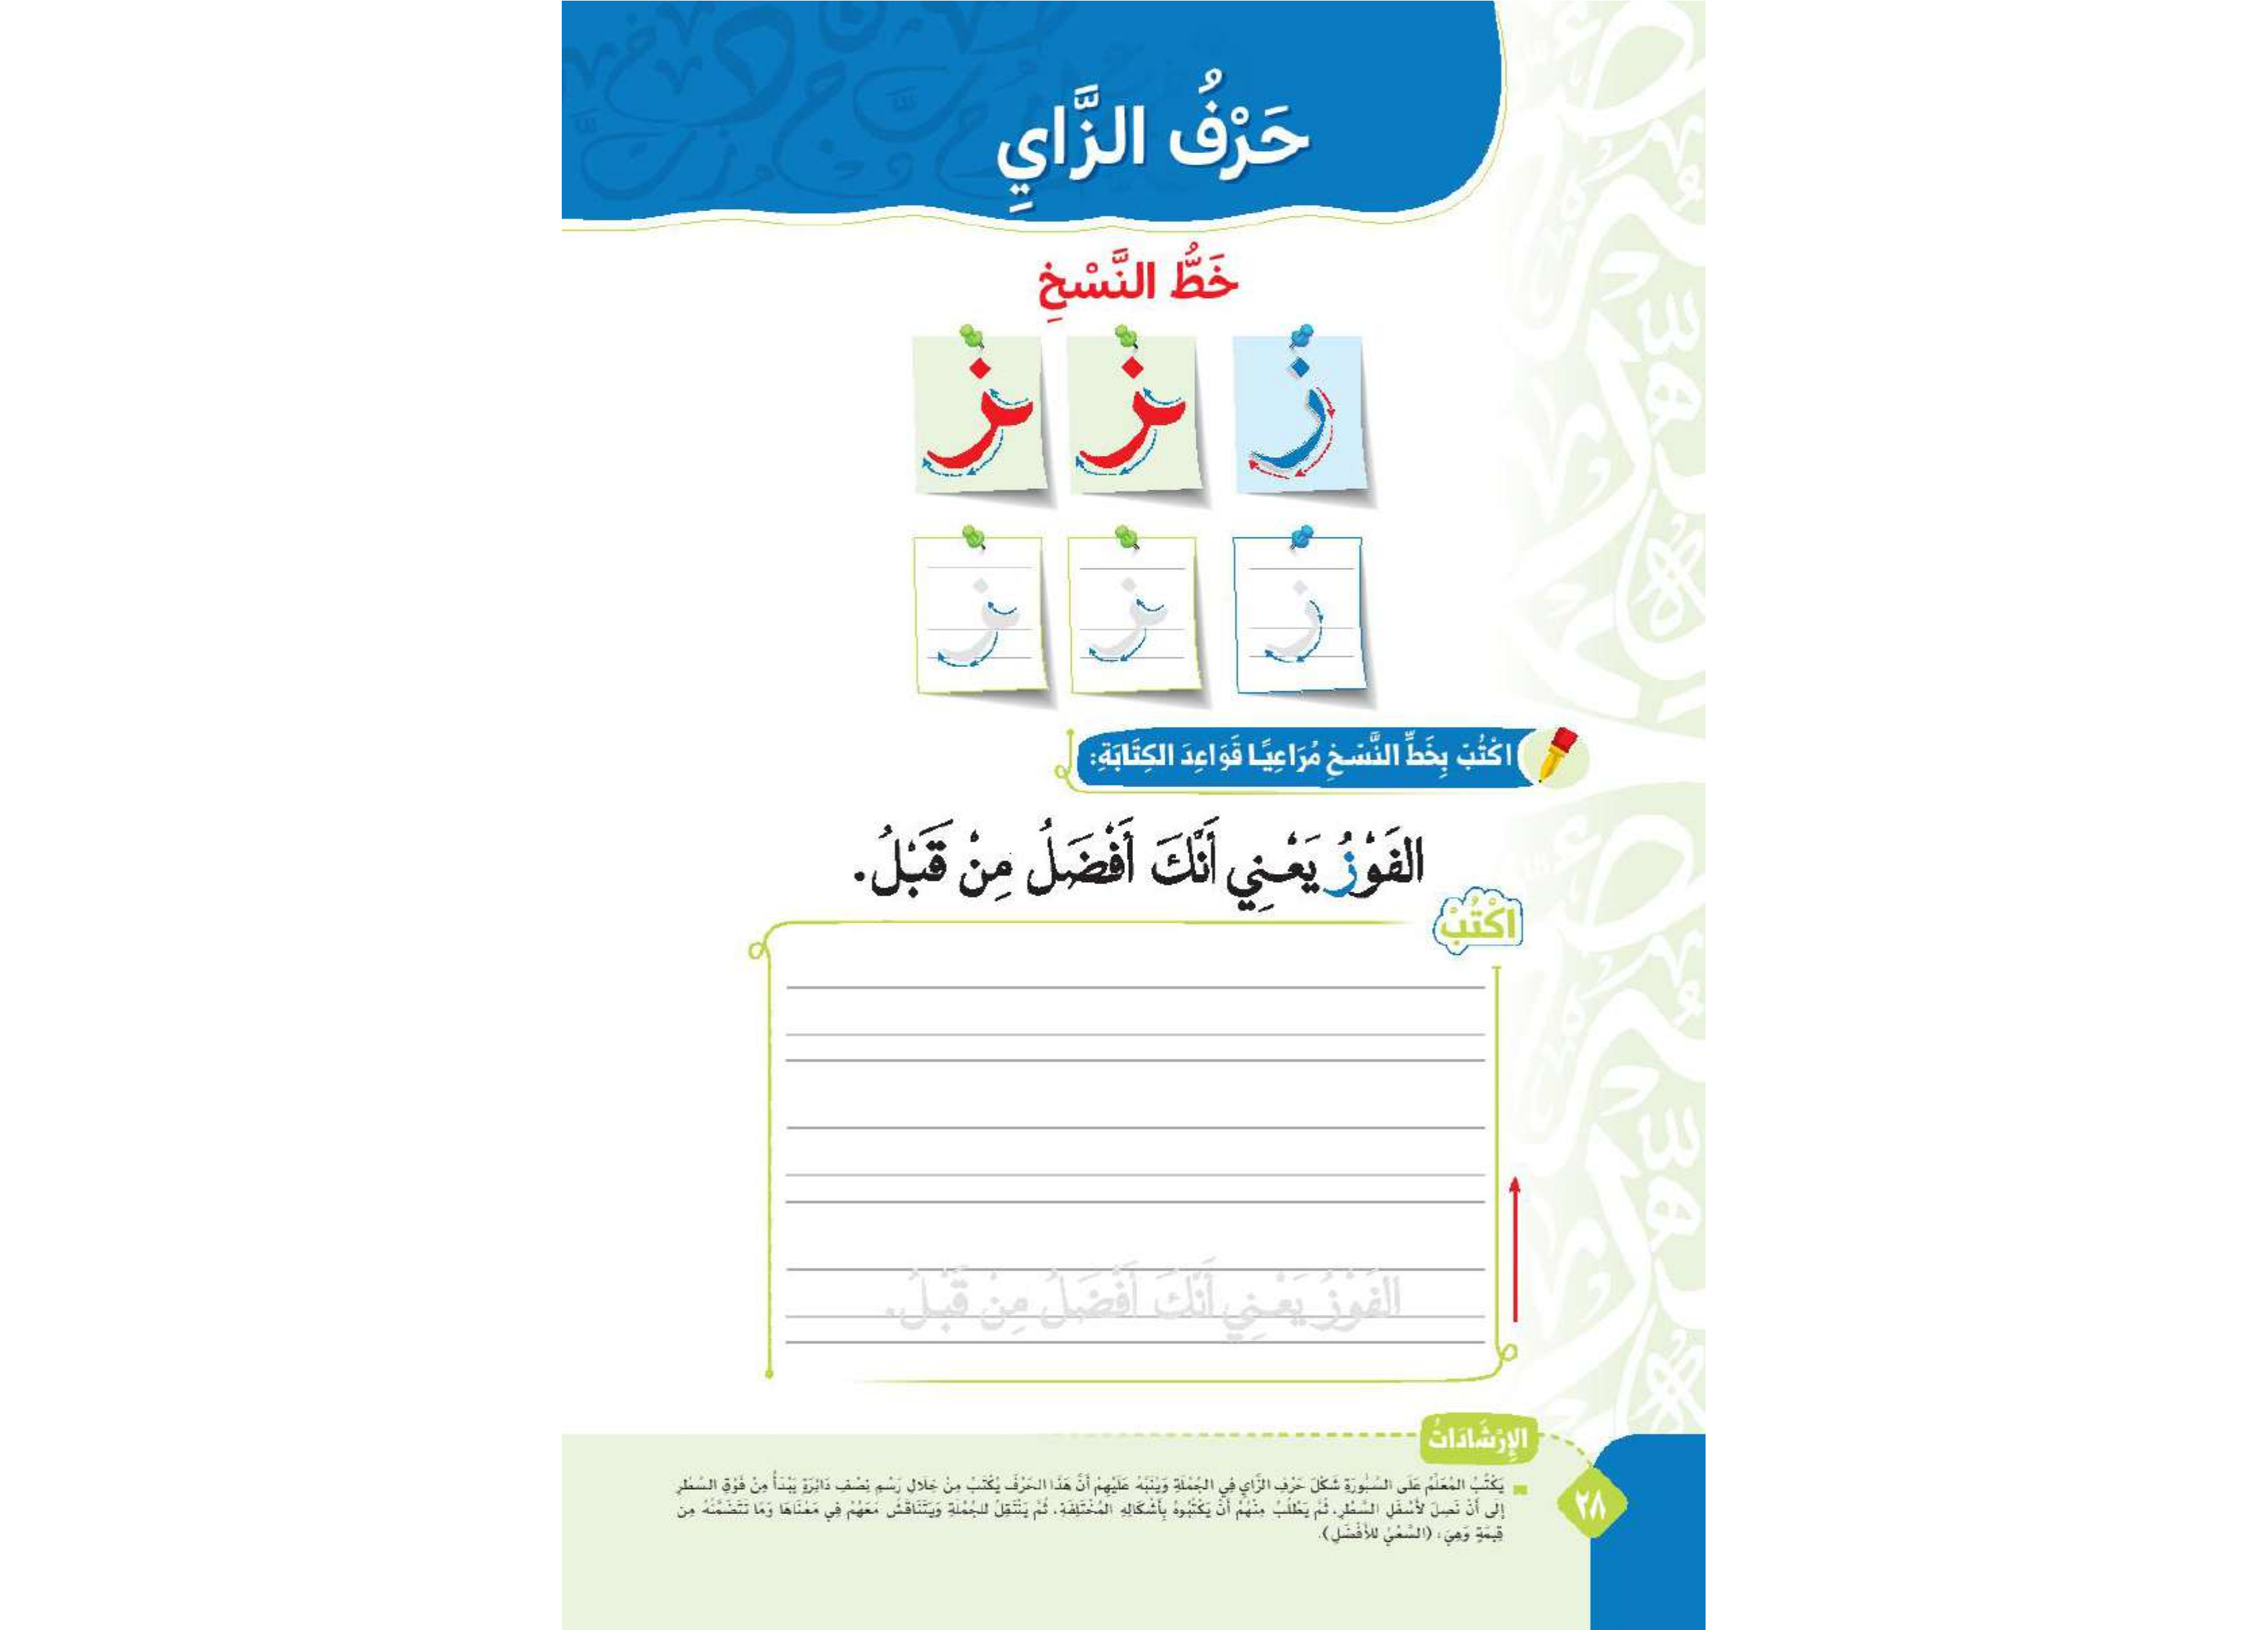 حَرْفُ الزَّايِ
خَطُّ النَّسْخِ
ز ـز ـز
ز ـز ـز
اكْتُبْ بِخَطِّ النَّسْخِ مُرَاعِيًا قَوَاعِدَ الكِتَابَةِ:
الفَوْزُ يَعْنِي أَنَّكَ أَفْضَلُ مِنْ قَبْلُ.
اكْتُبْ
الفَوْزُ يَعْنِي أَنَّكَ أَفْضَلُ مِنْ قَبْلُ.
الإِرْشَادَاتُ
يَكْتُبُ المُعَلِّمُ عَلَى السَّبُّورَةِ شَكْلَ حَرْفِ الزَّايِ فِي الجُمْلَةِ وَيُنَبِّهُ عَلَيْهِمْ أَنَّ هَذَا الحَرْفَ يُكْتَبُ مِنْ خِلَالِ رَسْمِ نِصْفِ دَائِرَةٍ يَبْدَأُ مِنْ فَوْقِ السَّطْرِ
إِلَى أَنْ نَصِلَ لأَسْفَلِ السَّطْرِ، ثُمَّ يَطْلُبُ مِنْهُمْ أَنْ يَكْتُبُوهُ بِأَشْكَالِهِ المُخْتَلِفَةِ، ثُمَّ يَنْتَقِلُ للجُمْلَةِ وَيَتَنَاقَشُ مَعَهُمْ فِي مَعْنَاهَا وَمَا تَتَضَمَّنَهُ مِن
قِيمَةٍ وَهِيَ، (السَّعْيُ للأَفْضَلِ).
٢٨